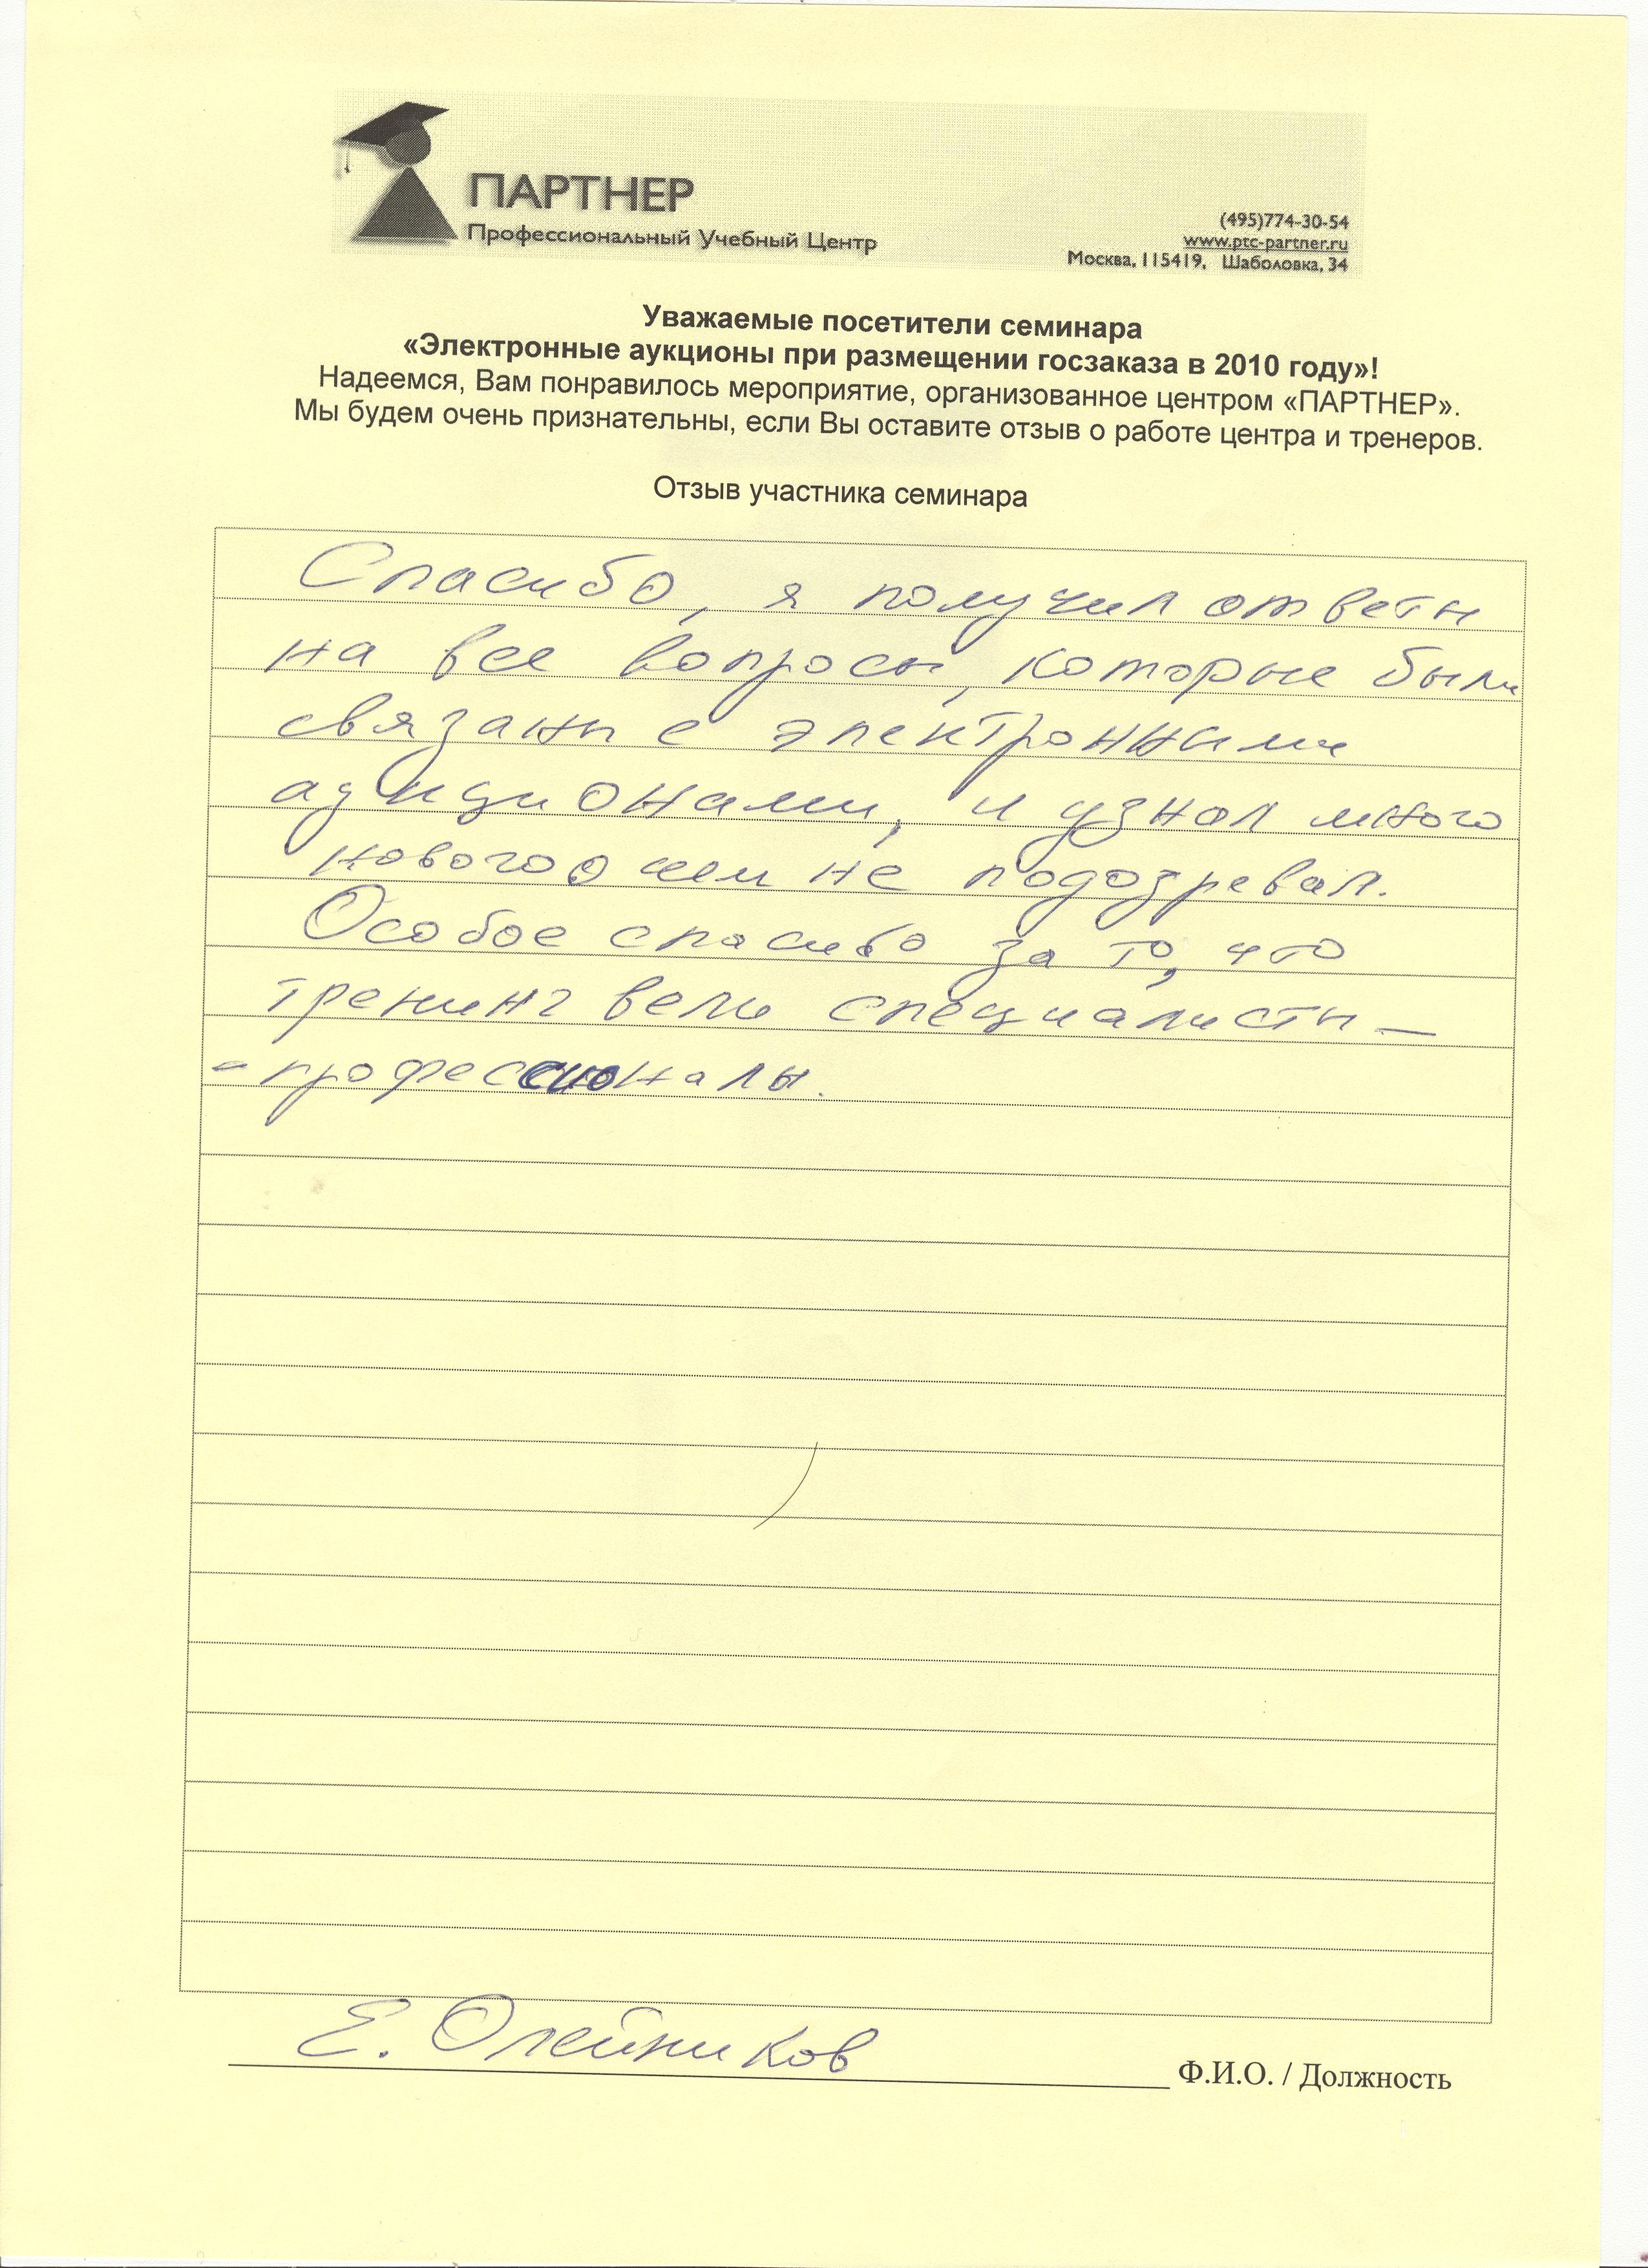 ПАРТНЕР
Профессиональный Учебный Центр
(495)774-30-54
www.ptc-partner.ru
Москва, 115419, Шаболовка, 34
Уважаемые посетители семинара
«Электронные аукционы при размещении госзаказа в 2010 году»!
Надеемся, Вам понравилось мероприятие, организованное центром «ПАРТНЕР».
Мы будем очень признательны, если Вы оставите отзыв о работе центра и тренеров.
Отзыв участника семинара
Спасибо, я получил ответы
на все вопросы, которые были
связаны с электронными
аукционами, и узнал много
нового о чем не подозревал.
Особое спасибо за то, что
тренинг вели специалисты –
- профессионалы.
Е. Олейников
Ф.И.О. / Должность